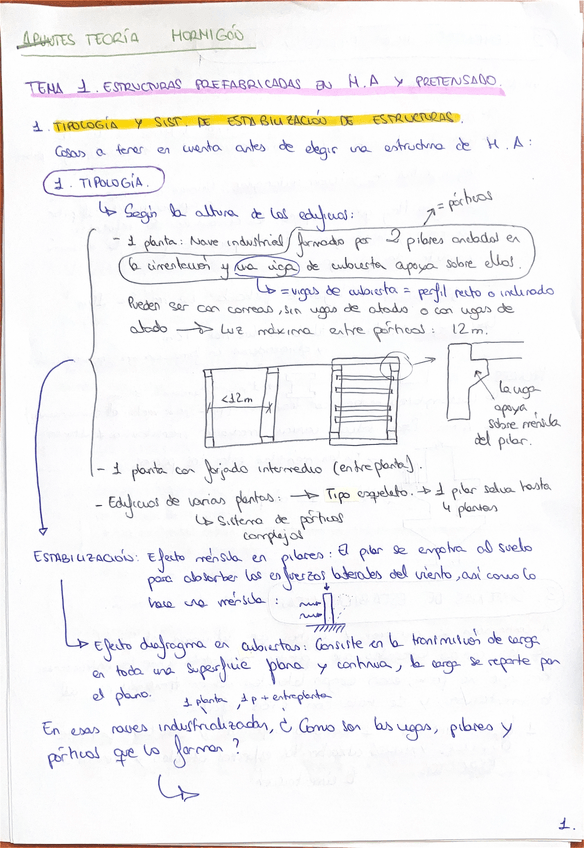 APUNTES TEORÍA HORMIGÓN
TEMA 1. ESTRUCTURAS PREFABRICADAS EN H.A Y PRETENSADO.
1. TIPOLOGÍA Y SIST. DE ESTABILIZACIÓN DE ESTRUCTURAS.
Cosas a tener en cuenta antes de elegir una estructura de H.A:
1. TIPOLOGÍA.
↳ Según la altura de los edificios:
= pórticos
- 1 planta: Nave industrial formado por 2 pilares anclados en
la cimentación y una viga de cubierta apoya sobre ellos.
↳ = vigas de cubierta = perfil recto o inclinado
Pueden ser con correas, sin vigas de atado o con vigas de
atado → Luz máxima entre pórticos: 12m.
<12m
la viga
apoya
sobre ménsula
del pilar.
- 1 planta con forjado intermedio (entreplanta).
- Edificios de varias plantas: → Tipo esqueleto. → 1 pilar salva hasta
4 plantas
↳ Sistema de pórticos
complejos
ESTABILIZACIÓN: Efecto ménsula en pilares: El pilar se empotra al suelo
para absorber los esfuerzos laterales del viento, así como lo
hace una ménsula:
↳ Efecto diafragma en cubiertas: Consiste en la transmisión de carga
en toda una superficie plana y continua, la carga se reparte por
el plano.
1 planta, 1p + entreplanta
En esas naves industrializadas, ¿Cómo son las vigas, pilares y
pórticos que lo forman?
↳
1.